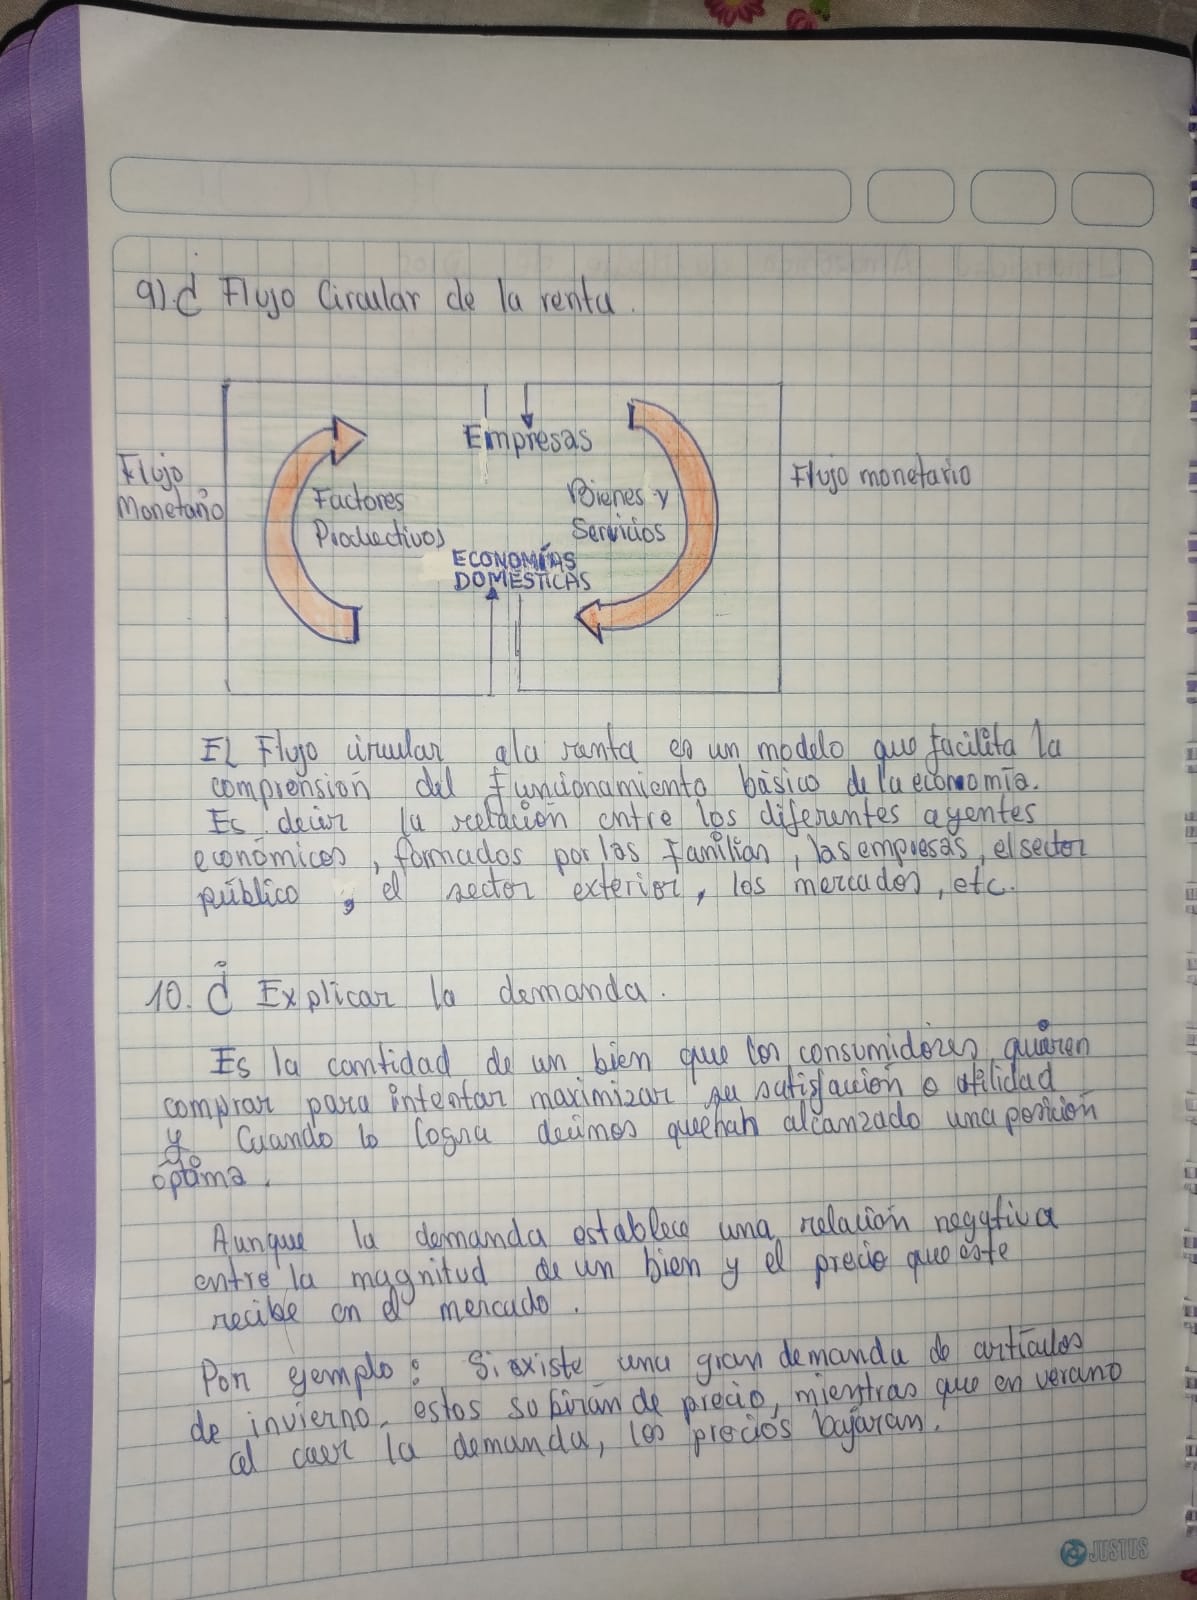 9) ¿ Flujo Circular de la renta.
Flujo
Monetario
Empresas
Factores
Productivos
Bienes y
Servicios
ECONOMÍAS
DOMÉSTICAS
Flujo monetario
El Flujo circular de la renta es un modelo que facilita la
comprensión del funcionamiento básico de la economía.
Es decir la relación entre los diferentes agentes
económicos, formados por las familias, las empresas, el sector
público, el sector exterior, los mercados, etc.
10. ¿ Explicar la demanda.
Es la cantidad de un bien que los consumidores quieren
comprar para intentar maximizar su satisfacción o utilidad
y Cuando lo logra decimos que han alcanzado una posición
óptima.
Aunque la demanda establece una relación negativa
entre la magnitud de un bien y el precio que este
recibe en el mercado.
Por ejemplo: Si existe una gran demanda de artículos
de invierno, estos subirán de precio, mientras que en verano
al caer la demanda, los precios bajaran.
JUSTUS